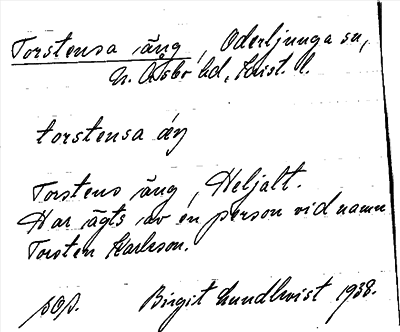 Torstensa äng, Oderljunga sn,
N. Åsbo hd, Krist. l.
torstensa äŋ
Torstens äng, Heljalt.
Har ägts av en person vid namn
Torsten Karlsson.
sOp. Birgit Lundkvist 1938.